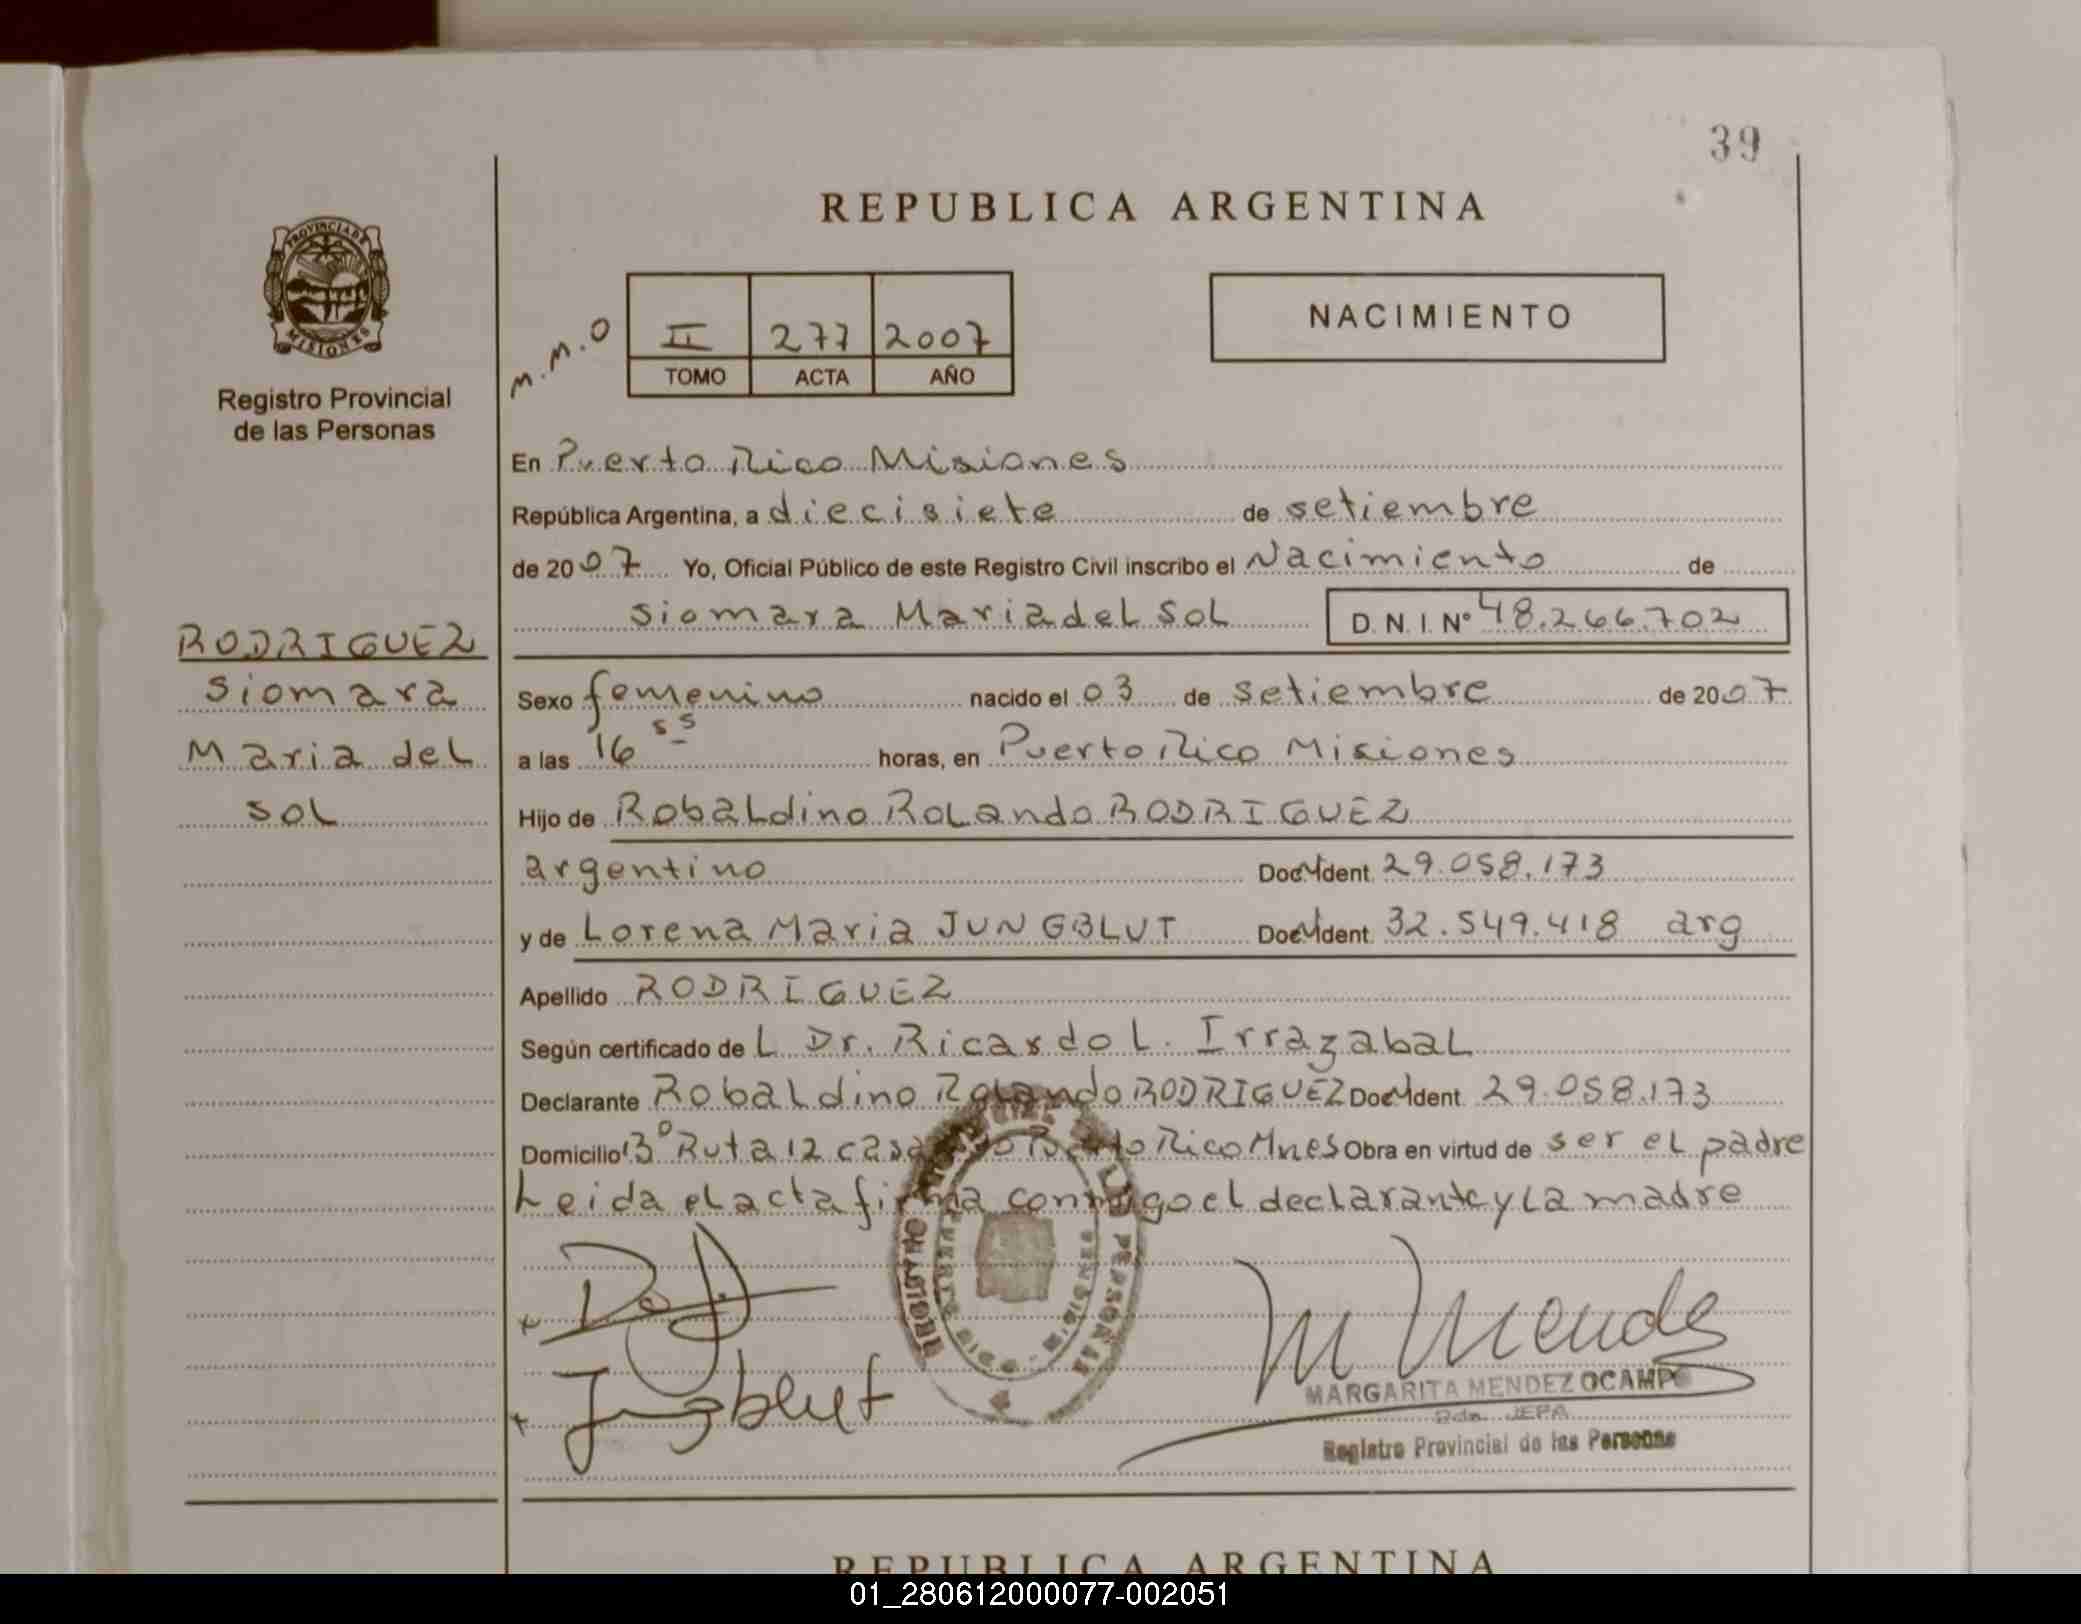 39
REPUBLICA ARGENTINA
PROVINCIA DE
MISIONES
Registro Provincial
de las Personas
M.M.O
II 277 2007
TOMO ACTA AÑO
NACIMIENTO
En Puerto Rico Misiones
República Argentina, a diecisiete de setiembre
de 2007 Yo, Oficial Público de este Registro Civil inscribo el Nacimiento de
Siomara Maria del Sol D.N.I. Nº 48.266.702
RODRIGUEZ
Siomara
Maria del
Sol
Sexo femenino nacido el 03 de setiembre de 2007
a las 16 55 horas, en Puerto Rico Misiones
Hijo de Robaldino Rolando RODRIGUEZ
argentino Doc. Ident. 29.058.173
y de Lorena Maria JUNGBLUT Doc. Ident. 32.549.418 arg
Apellido RODRIGUEZ
Según certificado del Dr. Ricardo L. Irrazabal
Declarante Robaldino Rolando RODRIGUEZ Doc. Ident. 29.058.173
Domicilio Bº Ruta 12 Puerto Rico Mnes Obra en virtud de ser el padre
Leida el acta firma conmigo el declarante y la madre
Jungblut
M Mendez
MARGARITA MENDEZ OCAMPO
Registro Provincial de las Personas
REPUBLICA ARGENTINA
01_280612000077-002051